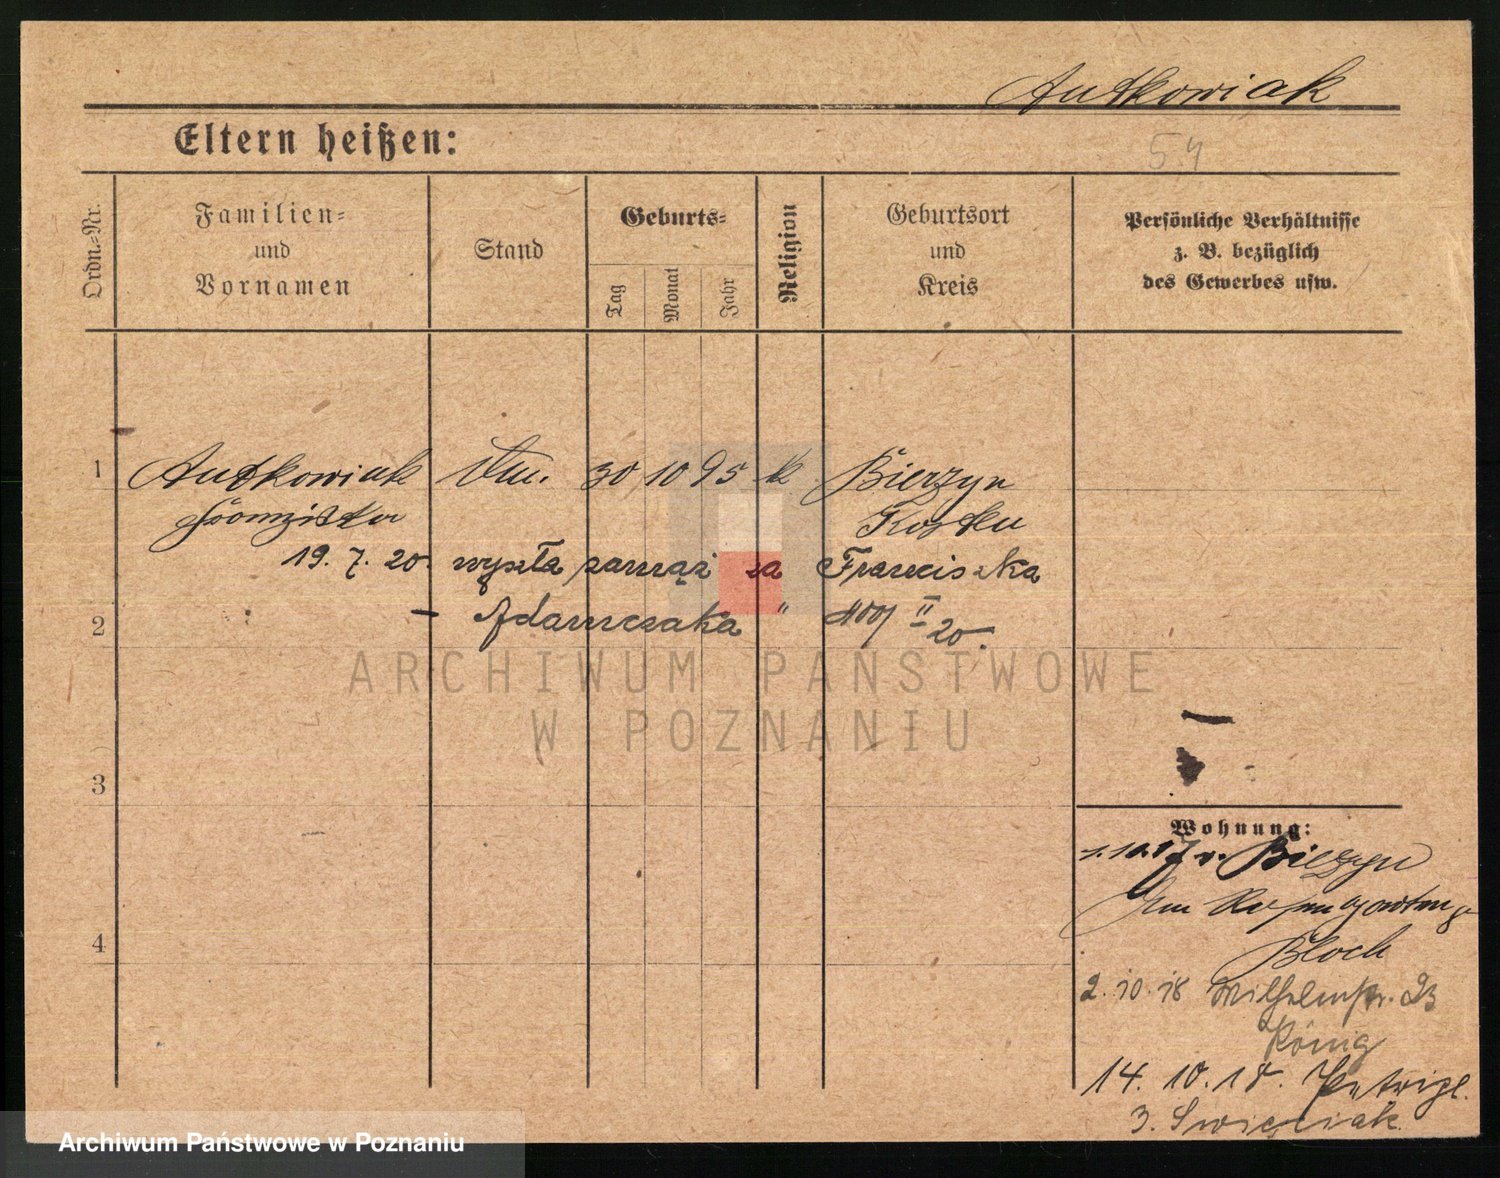 Antkowiak
Eltern heißen:
54
Ordn.=Nr.
Familien=
und
Vornamen
Stand
Geburts=
Tag
Monat
Jahr
Religion
Geburtsort
und
Kreis
Persönliche Verhältnisse
z. B. bezüglich
des Gewerbes usw.
1 Antkowiak 30 10 95 k Bierzyn
Franziska Kosten
19. 7. 20. wyszła zamąż za Franciszka
2 — Adamczaka " II 20.
ARCHIWUM PAŃSTWOWE
W POZNANIU
3
Wohnung:
1.10.17 v. Bierzyn
Am
Bloch
4
2. 10. 18 Wilhelmstr. 23
König
14. 10. 18. Petripl.
3. Swięciak
Archiwum Państwowe w Poznaniu